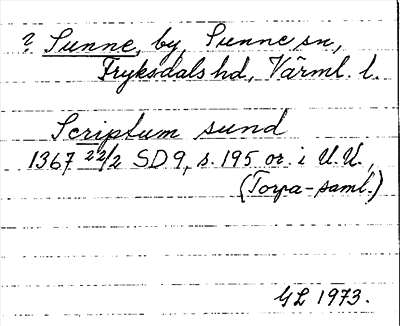 ? Sunne, by, Sunne sn,
Fryksdals hd, Värml. l.
Scriptum sund
1367 22/2 SD 9, s. 195 or. i U.U.,
(Torpa-saml.)
GL 1973.